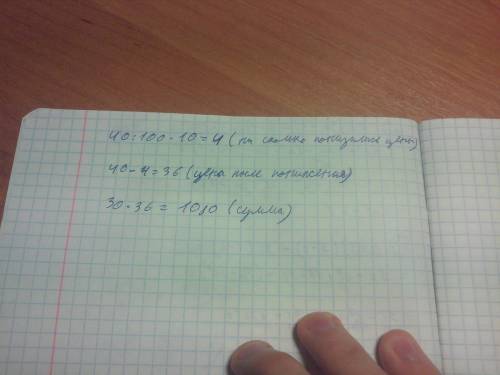 40:100·10=4 (на сколько понизились цены)
40-4=36 (цена после понижения)
30·36=1080 (сумма)